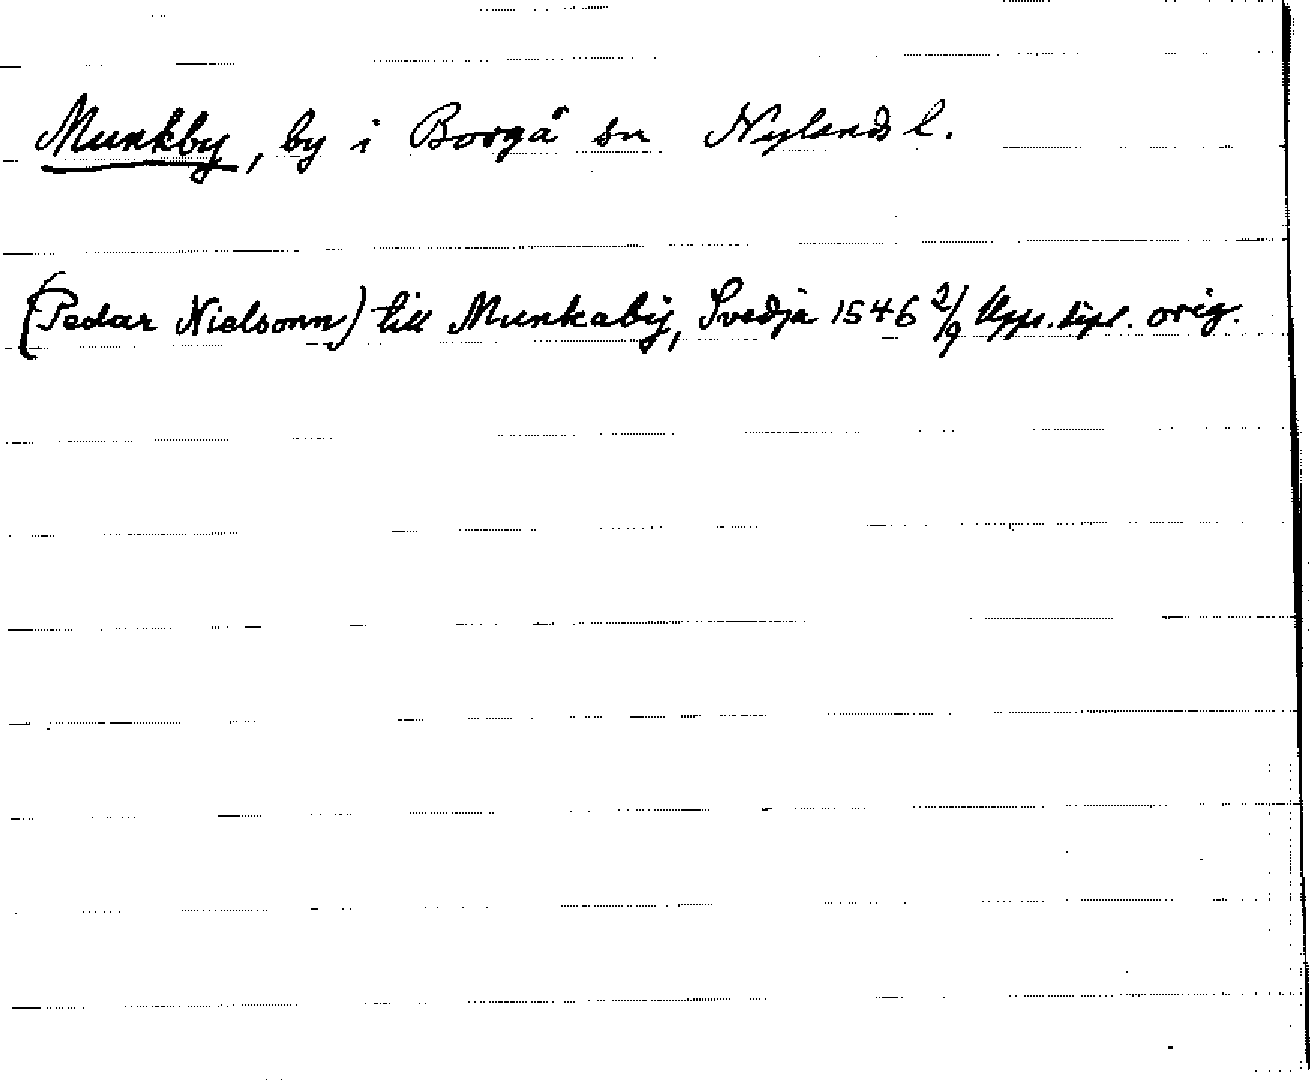 Munkby, by i Borgå sn Nylands l.
(Pedar Nielsonn) till Munkabij, Svedja 1546 2/9 Upps. dipl. orig.